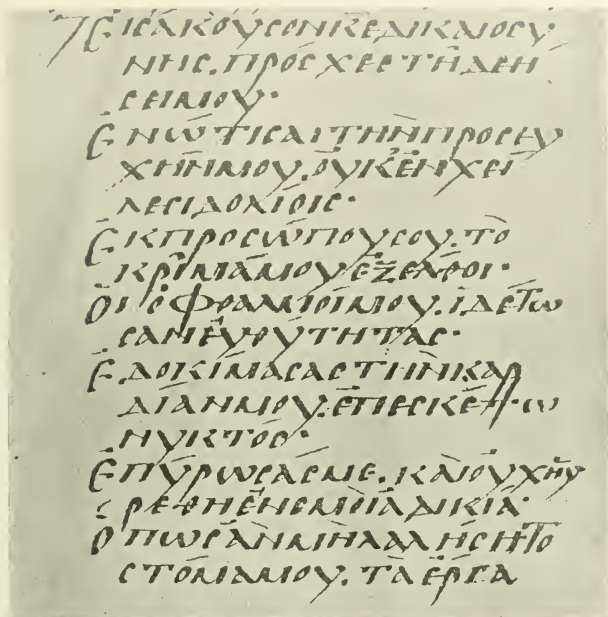 ΕΙCΑΚΟΥCΟΝΚΕΔΙΚΑΙΟCΥ
ΝΗC. ΠΡΟCΧΕC ΤΗ ΔΕΗ
CΕΙΜΟΥ·
ΕΝΩΤΙCΑΙ ΤΗΝΠΡΟCΕΥ
ΧΗΝΜΟΥ. ΟΥΚΕΝΧΕΙ
ΛΕCΙΔΟΛΙΟΙC·
ΕΚΠΡΟCΩΠΟΥCΟΥ. ΤΟ
ΚΡΙΜΑΜΟΥΕΞΕΛΘΟΙ·
ΟΙ ΟΦΘΑΛΜΟΙΜΟΥ. ΙΔΕΤΩ
CΑΝΕΥΘΥΤΗΤΑC·
ΕΔΟΚΙΜΑCΑC ΤΗΝΚΑΡ
ΔΙΑΝΜΟΥ. ΕΠΕCΚΕΨΩ
ΝΥΚΤΟC·
ΕΠΥΡΩCΑCΜΕ. ΚΑΙΟΥΧΗΥ
ΡΕΘΗΕΝΕΜΟΙΑΔΙΚΙΑ·
ΟΠΩCΑΝΜΗΛΑΛΗCΗΤΟ
CΤΟΜΑΜΟΥ. ΤΑΕΡΓΑ